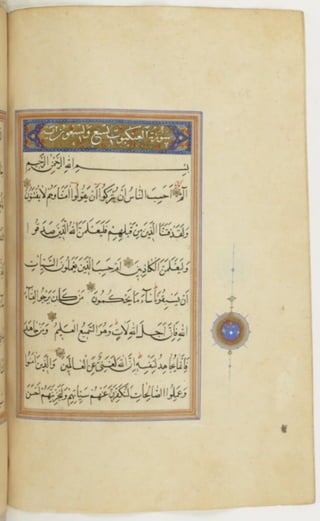 سورة العنكبوت تسع وستون
بسم الله الرحمن الرحيم
الم احسب الناس ان يتركوا ان يقولوا امنا وهم لا يفتنون
ولقد فتنا الذين من قبلهم فليعلمن الله الذين صدقوا
وليعلمن الكاذبين ام حسب الذين يعملون السيئات
ان يسبقونا ساء ما يحكمون من كان يرجوا لقاء
الله فان اجل الله لات وهو السميع العليم ومن جاهد
فانما يجاهد لنفسه ان الله لغني عن العالمين والذين امنوا
وعملوا الصالحات لنكفرن عنهم سيئاتهم ولنجزينهم احسن